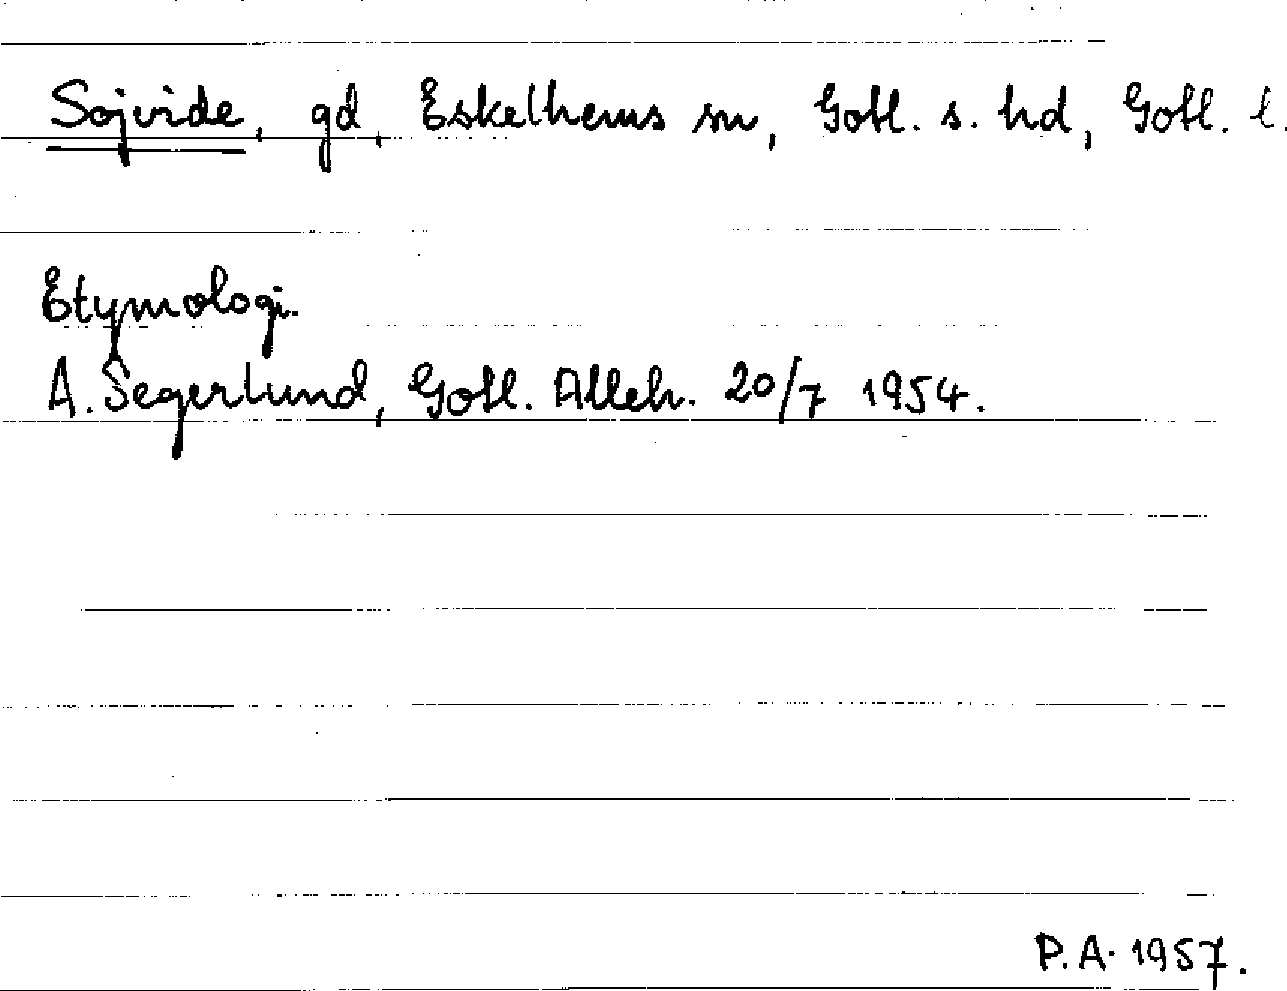 Sojvide, gd, Eskelhems sn, Gotl. s. hd, Gotl. l.
Etymologi.
A. Segerlund, Gotl. Alleh. 20/7 1954.
P.A. 1957.